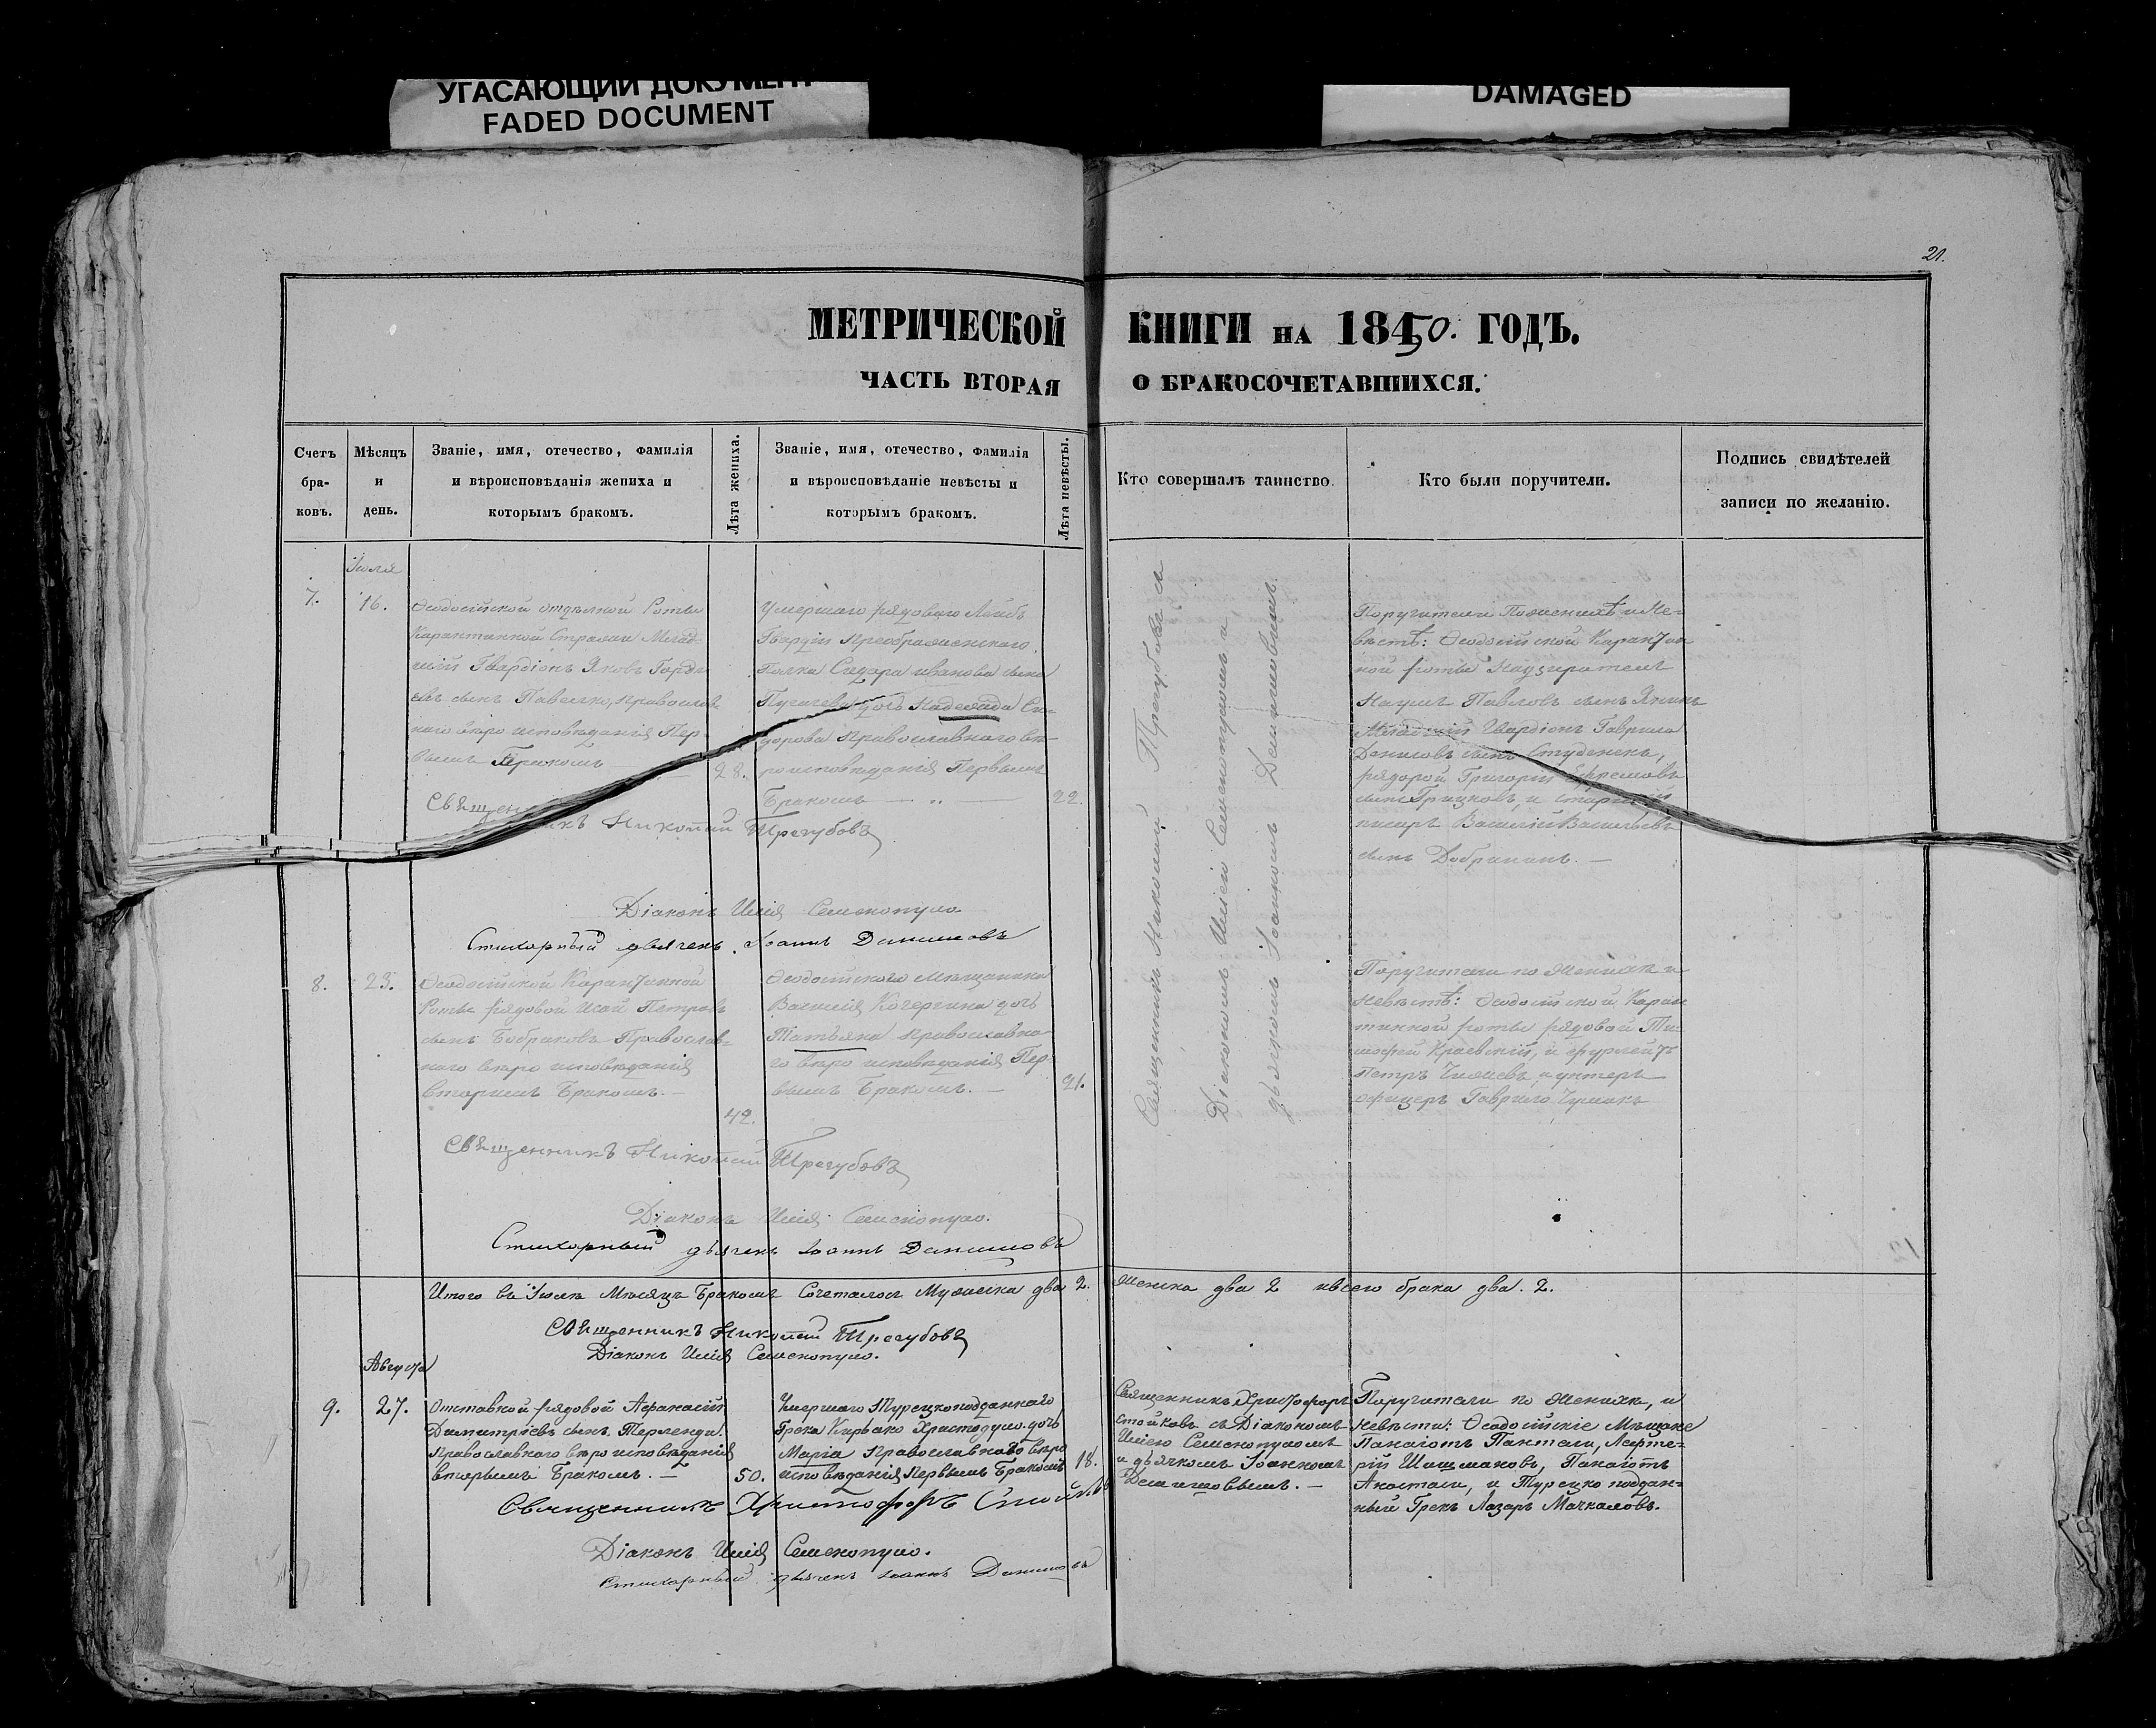 УГАСАЮЩИЙ ДОКУМЕНТ
FADED DOCUMENT
DAMAGED
21.
МЕТРИЧЕСКОЙ КНИГИ НА 1850. ГОДЪ.
ЧАСТЬ ВТОРАЯ О БРАКОСОЧЕТАВШИХСЯ.
Счетъ
бра-
ковъ.
Мѣсяцъ
и
день.
Званіе, имя, отечество, фамилія
и вѣроисповѣданія жениха и
которымъ бракомъ.
Лѣта жениха.
Званіе, имя, отечество, фамилія
и вѣроисповѣданіе невѣсты и
которымъ бракомъ.
Лѣта невѣсты.
Кто совершалъ таинство.
Кто были поручители.
Подпись свидѣтелей
записи по желанію.
Іюля
7.
16.
Ѳеодосійской отдѣлной Роты
Карантинной Стражи Млад-
шій Гвардіонъ Яковъ Горде-
евъ сынъ Павелко, православ-
наго вѣро исповѣданія Пер-
вымъ Бракомъ
28.
Умершаго рядоваго Лейбъ
Гвардіи Преображенскаго
Полка Сидора иванова сына
Пугачева дочь Надежда Си-
дорова православнаго вѣ-
роисповѣданія Первымъ
Бракомъ
22.
Священникъ Николай Трегубовъ
Діаконъ Илія Семенопуло
Стихарный дьячекъ Іоаннъ Данишовъ
Священникъ Николай Трегубовъ съ
Діакономъ Иліею Семенопуломъ и
дьячкомъ Іоанномъ Данишовымъ.
Поручители По женихѣ и Не-
вѣстѣ: Ѳеодосійской Карантин
ной роты Надзиратель
Наумъ Павловъ сынъ
Младшій Гвардіонъ Гаврила
Даниловъ сынъ Студенекъ,
рядовой Григорій Ефремовъ
сынъ Грицковъ, и старшій
писарь Василій Васильевъ
сынъ
8.
23.
Ѳеодосійской Карантинной
Роты рядовой Исай Петровъ
сынъ Бобраковъ Православ-
наго вѣро исповѣданія
вторымъ Бракомъ.
42.
Ѳеодосійскаго Мѣщанина
Василія Кочергина дочь
Татьяна православна-
го вѣро исповѣданія Пер-
вымъ Бракомъ.
21.
Священникъ Николай Трегубовъ
Діаконъ Илія Семенопуло.
Стихарный дьячекъ Іоаннъ Данишовъ
Поручители по Женихѣ и
Невѣстѣ: Ѳеодосійской Каран
тинной роты рядовой Ти-
мофей Краевскій, и фурлейтъ
Петръ и унтеръ
офицеръ Гаврило Чумакъ
Итого въ Іюлѣ Мѣсяцѣ Бракомъ Сочеталось Мужеска два 2. Женска два 2 всего брака два. 2.
Священникъ Николай Трегубовъ
Діаконъ Илія Семенопуло.
Августа
9.
27.
Отставной рядовой Афанасій
Димитріевъ сынъ Терленди.
Православнаго вѣро исповѣданія
вторымъ Бракомъ.
50.
Умершаго Турецкоподданнаго
Грека Киріако Христодуло дочь
Марія Православнаго вѣро
исповѣданія Первымъ Бракомъ
18.
Священникъ Христофоръ
Стойковъ съ Діакономъ
Иліею Семенопуломъ
и дьячкомъ Іоанномъ
Данишовымъ.
Поручители по Женихѣ, и
невѣсты: Ѳеодосійскіе Мѣщане
Панаіотъ Пантели, Лефте-
рій Шишмановъ, Панаіотъ
Анастаси, и Турецко поддан-
ный Грекъ Лазарь
Священникъ Христофоръ Стойковъ
Діаконъ Илія Семенопуло.
Стихарный дьячекъ Іоаннъ Данишовъ